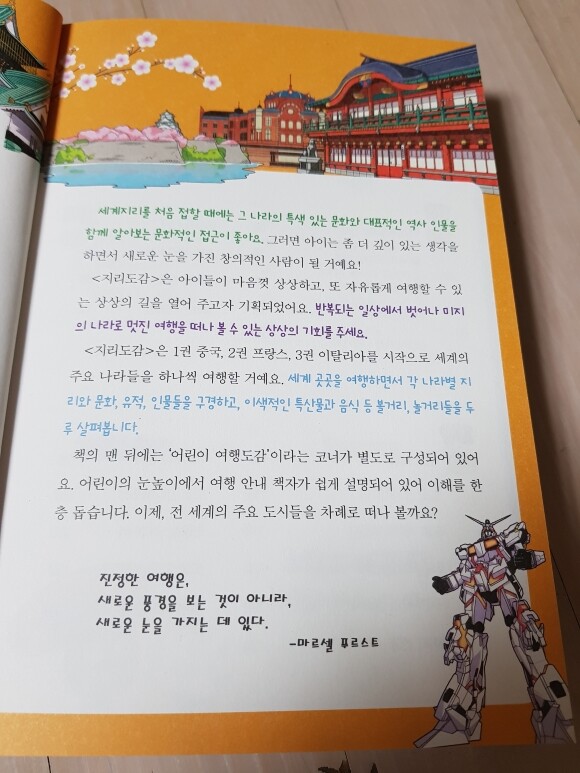 세계지리를 처음 접할 때에는 그 나라의 특색 있는 문화와 대표적인 역사 인물을
함께 알아보는 문화적인 접근이 좋아요. 그러면 아이는 좀 더 깊이 있는 생각을
하면서 새로운 눈을 가진 창의적인 사람이 될 거예요!
<지리도감>은 아이들이 마음껏 상상하고, 또 자유롭게 여행할 수 있
는 상상의 길을 열어 주고자 기획되었어요. 반복되는 일상에서 벗어나 미지
의 나라로 멋진 여행을 떠나 볼 수 있는 상상의 기회를 주세요.
<지리도감>은 1권 중국, 2권 프랑스, 3권 이탈리아를 시작으로 세계의
주요 나라들을 하나씩 여행할 거예요. 세계 곳곳을 여행하면서 각 나라별 지
리와 문화, 유적, 인물들을 구경하고, 이색적인 특산물과 음식 등 볼거리, 놀거리들을 두
루 살펴봅니다.
책의 맨 뒤에는 '어린이 여행도감'이라는 코너가 별도로 구성되어 있어
요. 어린이의 눈높이에서 여행 안내 책자가 쉽게 설명되어 있어 이해를 한
층 돕습니다. 이제, 전 세계의 주요 도시들을 차례로 떠나 볼까요?
진정한 여행은,
새로운 풍경을 보는 것이 아니라,
새로운 눈을 가지는 데 있다.
-마르셀 푸르스트